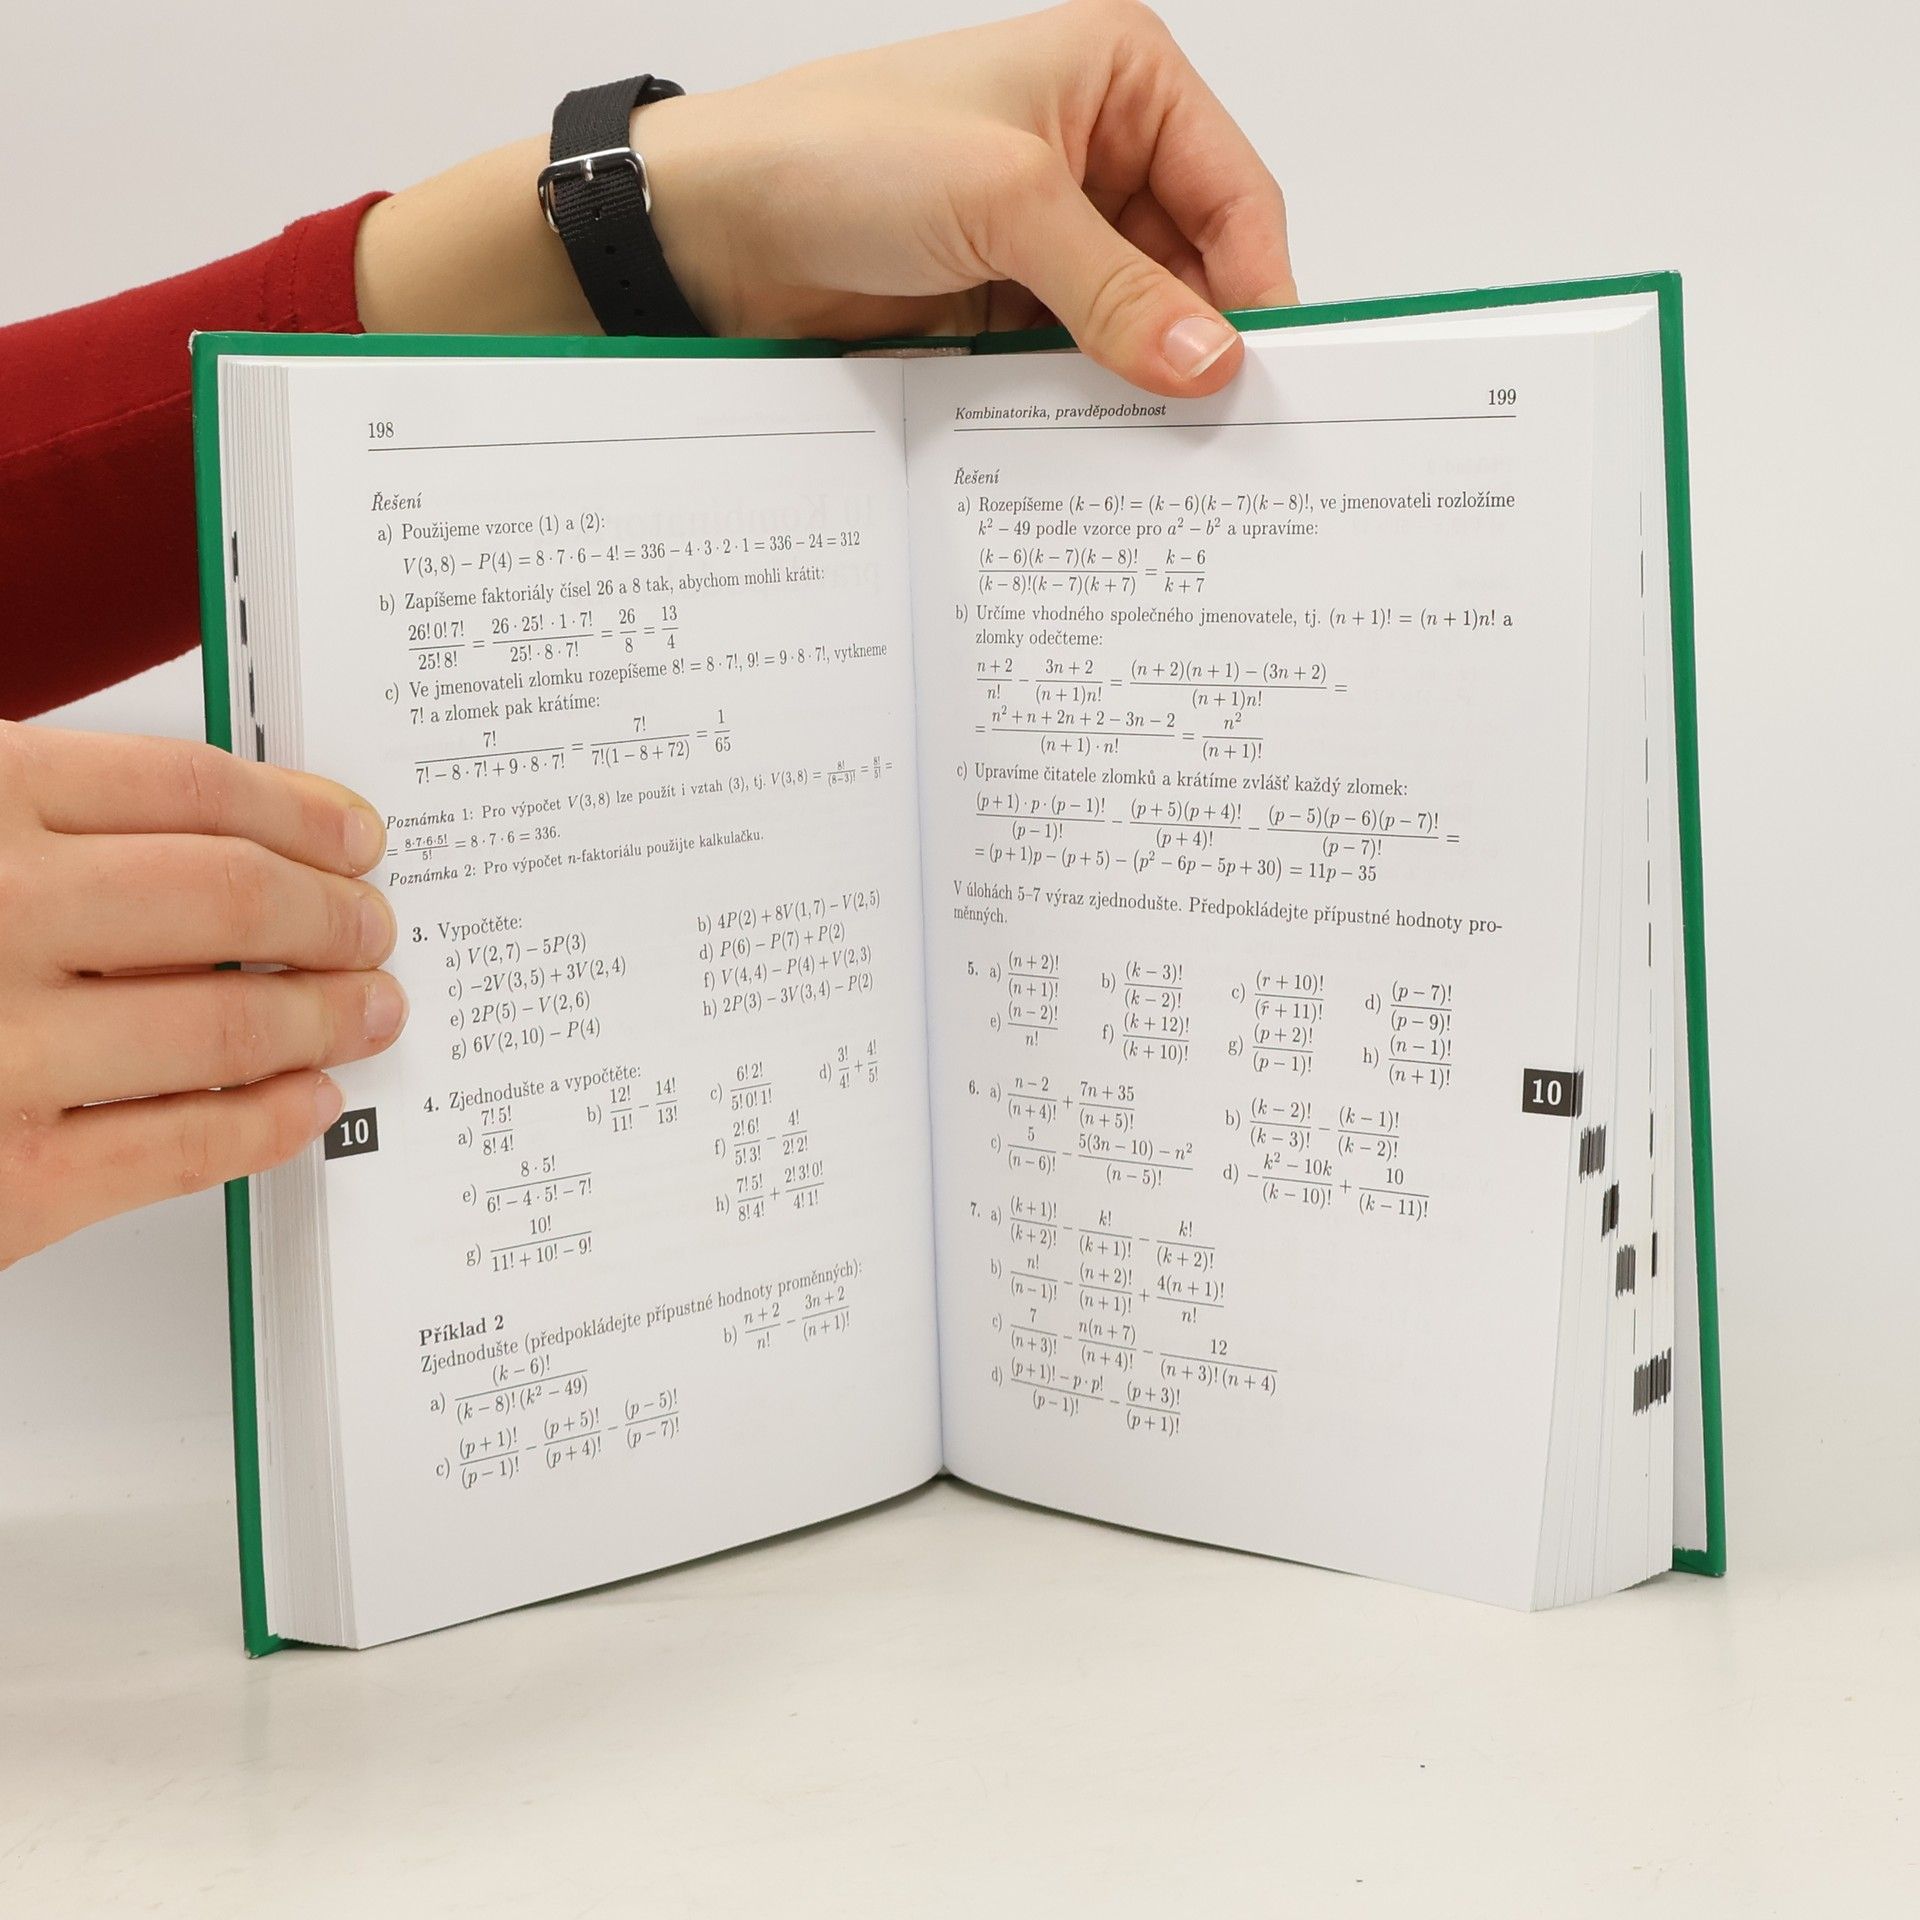 198
Řešení
a) Použijeme vzorce (1) a (2):
V(3,8) − P(4) = 8 · 7 · 6 − 4! = 336 − 4 · 3 · 2 · 1 = 336 − 24 = 312
b) Zapíšeme faktoriály čísel 26 a 8 tak, abychom mohli krátit:
26! 0! 7! / 25! 8! = 26 · 25! · 1 · 7! / 25! · 8 · 7! = 26/8 = 13/4
c) Ve jmenovateli zlomku rozepíšeme 8! = 8 · 7!, 9! = 9 · 8 · 7!, vytkneme
7! a zlomek pak krátíme:
7! / 7! − 8 · 7! + 9 · 8 · 7! = 7! / 7!(1 − 8 + 72) = 1/65
Poznámka 1: Pro výpočet V(3,8) lze použít i vztah (3), tj. V(3,8) = 8!/(8−3)! = 8!/5! =
= 8·7·6·5!/5! = 8 · 7 · 6 = 336.
Poznámka 2: Pro výpočet n-faktoriálu použijte kalkulačku.
3. Vypočtěte:
a) V(2,7) − 5P(3) b) 4P(2) + 8V(1,7) − V(2,5)
c) −2V(3,5) + 3V(2,4) d) P(6) − P(7) + P(2)
e) 2P(5) − V(2,6) f) V(4,4) − P(4) + V(2,3)
g) 6V(2,10) − P(4) h) 2P(3) − 3V(3,4) − P(2)
4. Zjednodušte a vypočtěte:
a) 7! 5! / 8! 4! b) 12!/11! − 14!/13! c) 6! 2! / 5! 0! 1! d) 3!/4! + 4!/5!
e) 8 · 5! / 6! − 4 · 5! − 7! f) 2! 6! / 5! 3! − 4! / 2! 2!
g) 10! / 11! + 10! − 9! h) 7! 5! / 8! 4! + 2! 3! 0! / 4! 1!
10
Příklad 2
Zjednodušte (předpokládejte přípustné hodnoty proměnných):
a) (k − 6)! / (k − 8)! (k² − 49) b) n + 2 / n! − 3n + 2 / (n + 1)!
c) (p + 1)! / (p − 1)! − (p + 5)! / (p + 4)! − (p − 5)! / (p − 7)!
Kombinatorika, pravděpodobnost 199
Řešení
a) Rozepíšeme (k − 6)! = (k − 6)(k − 7)(k − 8)!, ve jmenovateli rozložíme
k² − 49 podle vzorce pro a² − b² a upravíme:
(k − 6)(k − 7)(k − 8)! / (k − 8)!(k − 7)(k + 7) = k − 6 / k + 7
b) Určíme vhodného společného jmenovatele, tj. (n + 1)! = (n + 1)n! a
zlomky odečteme:
n + 2 / n! − 3n + 2 / (n + 1)n! = (n + 2)(n + 1) − (3n + 2) / (n + 1)n! =
= n² + n + 2n + 2 − 3n − 2 / (n + 1) · n! = n² / (n + 1)!
c) Upravíme čitatele zlomků a krátíme zvlášť každý zlomek:
(p + 1) · p · (p − 1)! / (p − 1)! − (p + 5)(p + 4)! / (p + 4)! − (p − 5)(p − 6)(p − 7)! / (p − 7)! =
= (p + 1)p − (p + 5) − (p² − 6p − 5p + 30) = 11p − 35
V úlohách 5–7 výraz zjednodušte. Předpokládejte přípustné hodnoty pro-
měnných.
5. a) (n + 2)! / (n + 1)! b) (k − 3)! / (k − 2)! c) (r + 10)! / (r + 11)! d) (p − 7)! / (p − 9)!
e) (n − 2)! / n! f) (k + 12)! / (k + 10)! g) (p + 2)! / (p − 1)! h) (n − 1)! / (n + 1)!
6. a) n − 2 / (n + 4)! + 7n + 35 / (n + 5)! b) (k − 2)! / (k − 3)! − (k − 1)! / (k − 2)!
c) 5 / (n − 6)! − 5(3n − 10) − n² / (n − 5)! d) − k² − 10k / (k − 10)! + 10 / (k − 11)!
7. a) (k + 1)! / (k + 2)! − k! / (k + 1)! − k! / (k + 2)!
b) n! / (n − 1)! − (n + 2)! / (n + 1)! + 4(n + 1)! / n!
c) 7 / (n + 3)! − n(n + 7) / (n + 4)! − 12 / (n + 3)! (n + 4)
d) (p + 1)! − p · p! / (p − 1)! − (p + 3)! / (p + 1)!
10